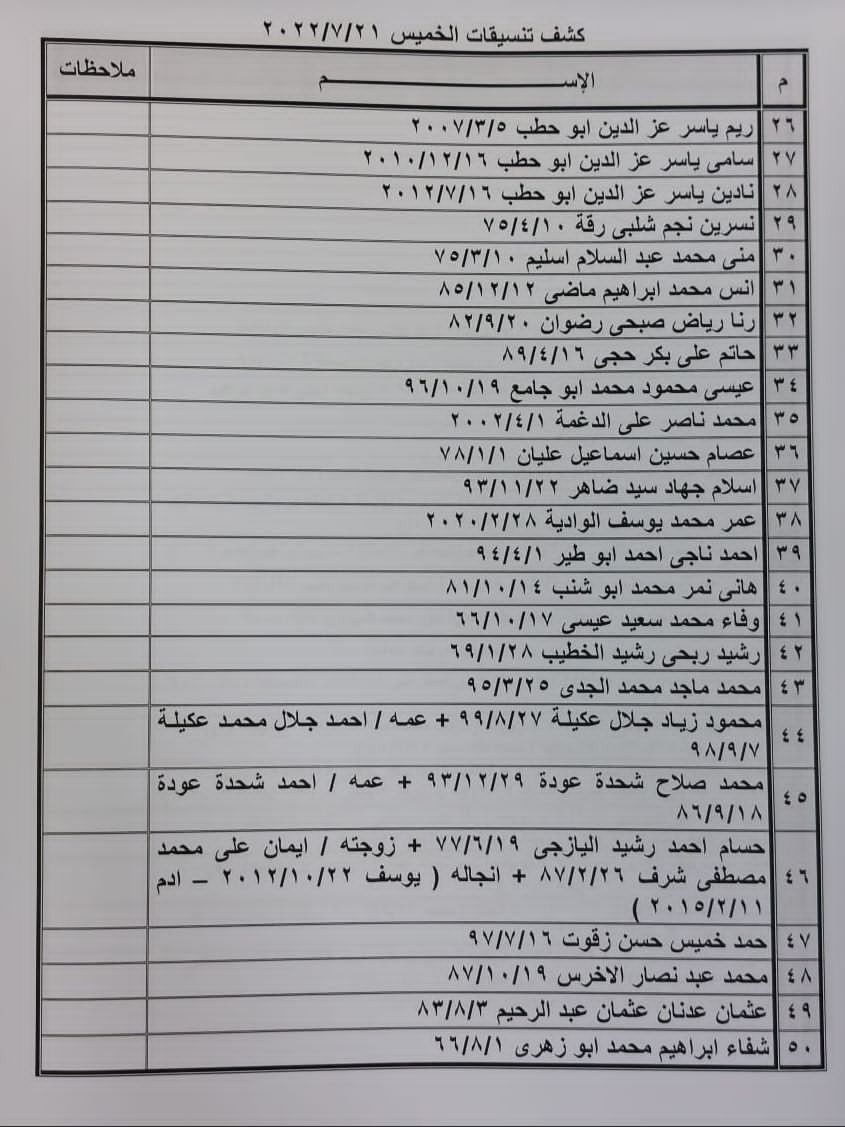 كشف تنسيقات الخميس ٢٠٢٢/٧/٢١
م الإســـــــــــم ملاحظات
٢٦ ريم ياسر عز الدين ابو حطب ٢٠٠٧/٣/٥
٢٧ سامى ياسر عز الدين ابو حطب ٢٠١٠/١٢/١٦
٢٨ نادين ياسر عز الدين ابو حطب ٢٠١٢/٧/١٦
٢٩ نسرين نجم شلبى رقة ٧٥/٤/١٠
٣٠ منى محمد عبد السلام اسليم ٧٥/٣/١٠
٣١ انس محمد ابراهيم ماضى ٨٥/١٢/١٢
٣٢ رنا رياض صبحى رضوان ٨٢/٩/٢٠
٣٣ حاتم على بكر حجى ٨٩/٤/١٦
٣٤ عيسى محمود محمد ابو جامع ٩٦/١٠/١٩
٣٥ محمد ناصر على الدغمة ٢٠٠٢/٤/١
٣٦ عصام حسين اسماعيل عليان ٧٨/١/١
٣٧ اسلام جهاد سيد ضاهر ٩٣/١١/٢٢
٣٨ عمر محمد يوسف الوادية ٢٠٢٠/٢/٢٨
٣٩ احمد ناجى احمد ابو طير ٩٤/٤/١
٤٠ هانى نمر محمد ابو شنب ٨١/١٠/١٤
٤١ وفاء محمد سعيد عيسى ٦٦/١٠/١٧
٤٢ رشيد ربحى رشيد الخطيب ٦٩/١/٢٨
٤٣ محمد ماجد محمد الجدى ٩٥/٣/٢٥
٤٤ محمود زياد جلال عكيلة ٩٩/٨/٢٧ + عمه / احمد جلال محمد عكيلة
٩٨/٩/٧
٤٥ محمد صلاح شحدة عودة ٩٣/١٢/٢٩ + عمه / احمد شحدة عودة
٨٦/٩/١٨
٤٦ حسام احمد رشيد اليازجى ٧٧/٦/١٩ + زوجته / ايمان على محمد
مصطفى شرف ٨٧/٢/٢٦ + انجاله ( يوسف ٢٠١٢/١٠/٢٢ – ادم
٢٠١٥/٢/١١ )
٤٧ حمد خميس حسن زقوت ٩٧/٧/١٦
٤٨ محمد عبد نصار الاخرس ٨٧/١٠/١٩
٤٩ عثمان عدنان عثمان عبد الرحيم ٨٣/٨/٣
٥٠ شفاء ابراهيم محمد ابو زهرى ٦٦/٨/١